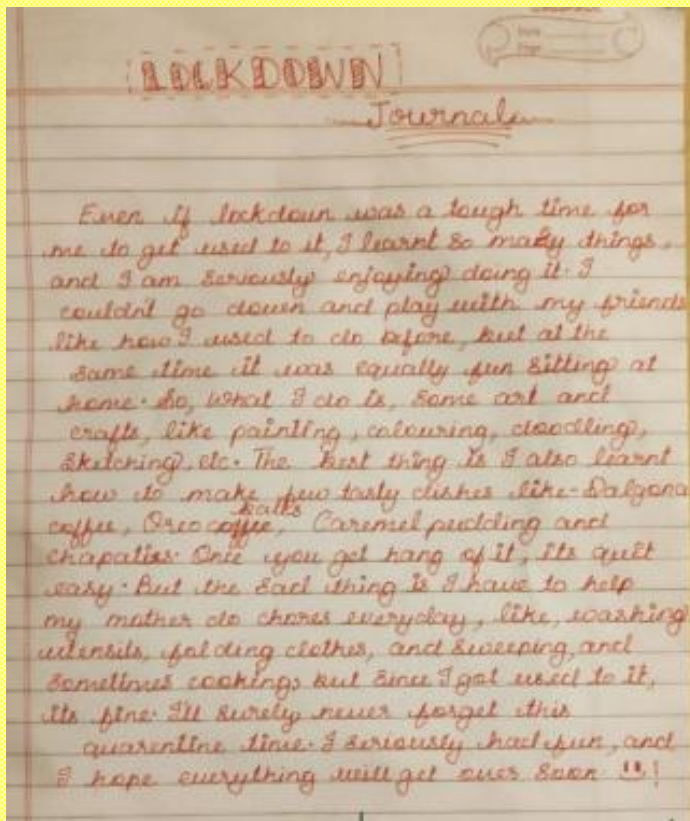 LOCKDOWN
Journal
Even if lockdown was a tough time for
me to get used to it, I learnt so many things,
and I am seriously enjoying doing it. I
couldn't go down and play with my friends
like how I used to do before, but at the
same time it was equally fun sitting at
home. So, what I do is, some art and
crafts, like painting, colouring, doodling,
sketching, etc. The best thing is I also learnt
how to make few tasty dishes like-Dalgona
coffee, Oreo balls, Caremel pudding and
chapaties. Once you get hang of it, its quit
easy. But the sad thing is I have to help
my mother do chores everyday, like, washing
utensils, folding clothes, and sweeping, and
sometimes cooking, but since I got used to it,
its fine. I'll surely never forget this
quarentine time. I seriously had fun, and
I hope everything will get over soon !